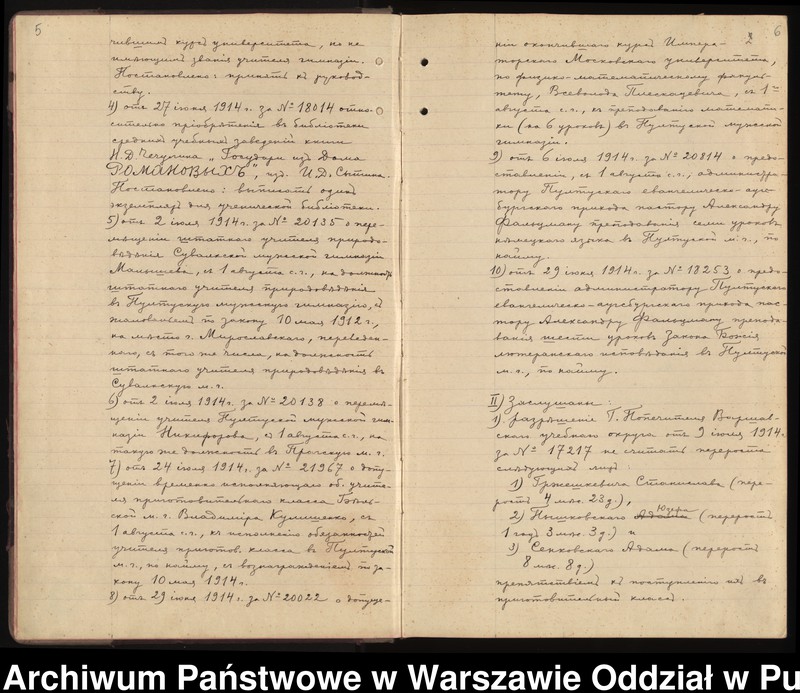 5
чившимъ курсъ университета, но не
имѣющимъ званія учителя гимназіи.
Постановлено: принять къ руковод-
ству.
4) отъ 27 іюня 1914 г. за № 18014 отно-
сительно пріобрѣтенія въ библіотеки
среднихъ учебныхъ заведеній книги
Н. Д. Чечулина „Государи изъ Дома
РОМАНОВЫХЪ", изд. И. Д. Сытина.
Постановлено: выписать одинъ
экземпляръ для ученической библіотеки.
5) отъ 2 іюля 1914 г. за № 20135 о пере-
мѣщеніи штатнаго учителя природо-
вѣдѣнія Сувалкской мужской гимназіи
с 1 августа с.г., на должность
штатнаго учителя природовѣдѣнія
въ Пултускую мужскую гимназію, съ
жалованьемъ по закону 10 мая 1912 г.,
на мѣсто г. Мирославскаго, переведен-
наго, съ того же числа, на должность
штатнаго учителя природовѣдѣнія въ
Сувалкскую м. г.
6) отъ 2 іюля 1914 г. за № 20138 о перемѣ-
щеніи учителя Пултуской мужской гим-
назіи Никифорова, съ 1 августа с.г., на
такую же должность въ Пражскую м. г.
7) отъ 24 іюля 1914 г. за № 21967 о допу-
щеніи временно исполняющаго об. учите-
ля приготовительнаго класса Бѣль-
ской м. г. Владиміра съ
1 августа с.г., къ исполненію обязанностей
учителя приготов. класса въ Пултуской
м. г., по найму, съ вознагражденіемъ по за-
кону 10 мая 1914 г.
8) отъ 29 іюня 1914 г. за № 20022 о допуще-
6
ніи окончившаго курсъ Импера-
торскаго Московскаго университета,
по физико-математическому факуль-
тету, Всеволода Плескацевича, съ 1го
августа с.г., къ преподаванію математи-
ки (на 6 уроковъ) въ Пултуской мужской
гимназіи.
9) отъ 6 іюля 1914 г. за № 20814 о предо-
ставленіи, съ 1 августа с.г., администра-
тору Пултускаго евангелическо-аугс-
бургскаго прихода пастору Александру
Фальцману преподаванія семи уроковъ
нѣмецкаго языка въ Пултуской м. г., по
найму.
10) отъ 29 іюня 1914 г. за № 18253 о предо-
ставленіи администратору Пултускаго
евангелическо-аугсбургскаго прихода пас-
тору Александру Фальцману препода-
ванія шести уроковъ Закона Божія
лютеранскаго исповѣданія въ Пултуской
м. г., по найму.
II) Заслушаны:
1) разрѣшеніе Г. Попечителя Варшав-
скаго учебнаго округа отъ 9 іюля 1914 г.
за № 17217 не считать переростъ
слѣдующихъ лицъ:
1) Гржешкевича Станислава (пере-
ростъ 4 мѣс. 23 д.),
2) Пышковскаго Юура (переростъ
1 годъ 3 мѣс. 3 д.) и
3) Сенковскаго Адама (переростъ
8 мѣс. 8 д.)
препятствіемъ къ поступленію ихъ въ
приготовительный классъ.
Archiwum Państwowe w Warszawie Oddział w Pu